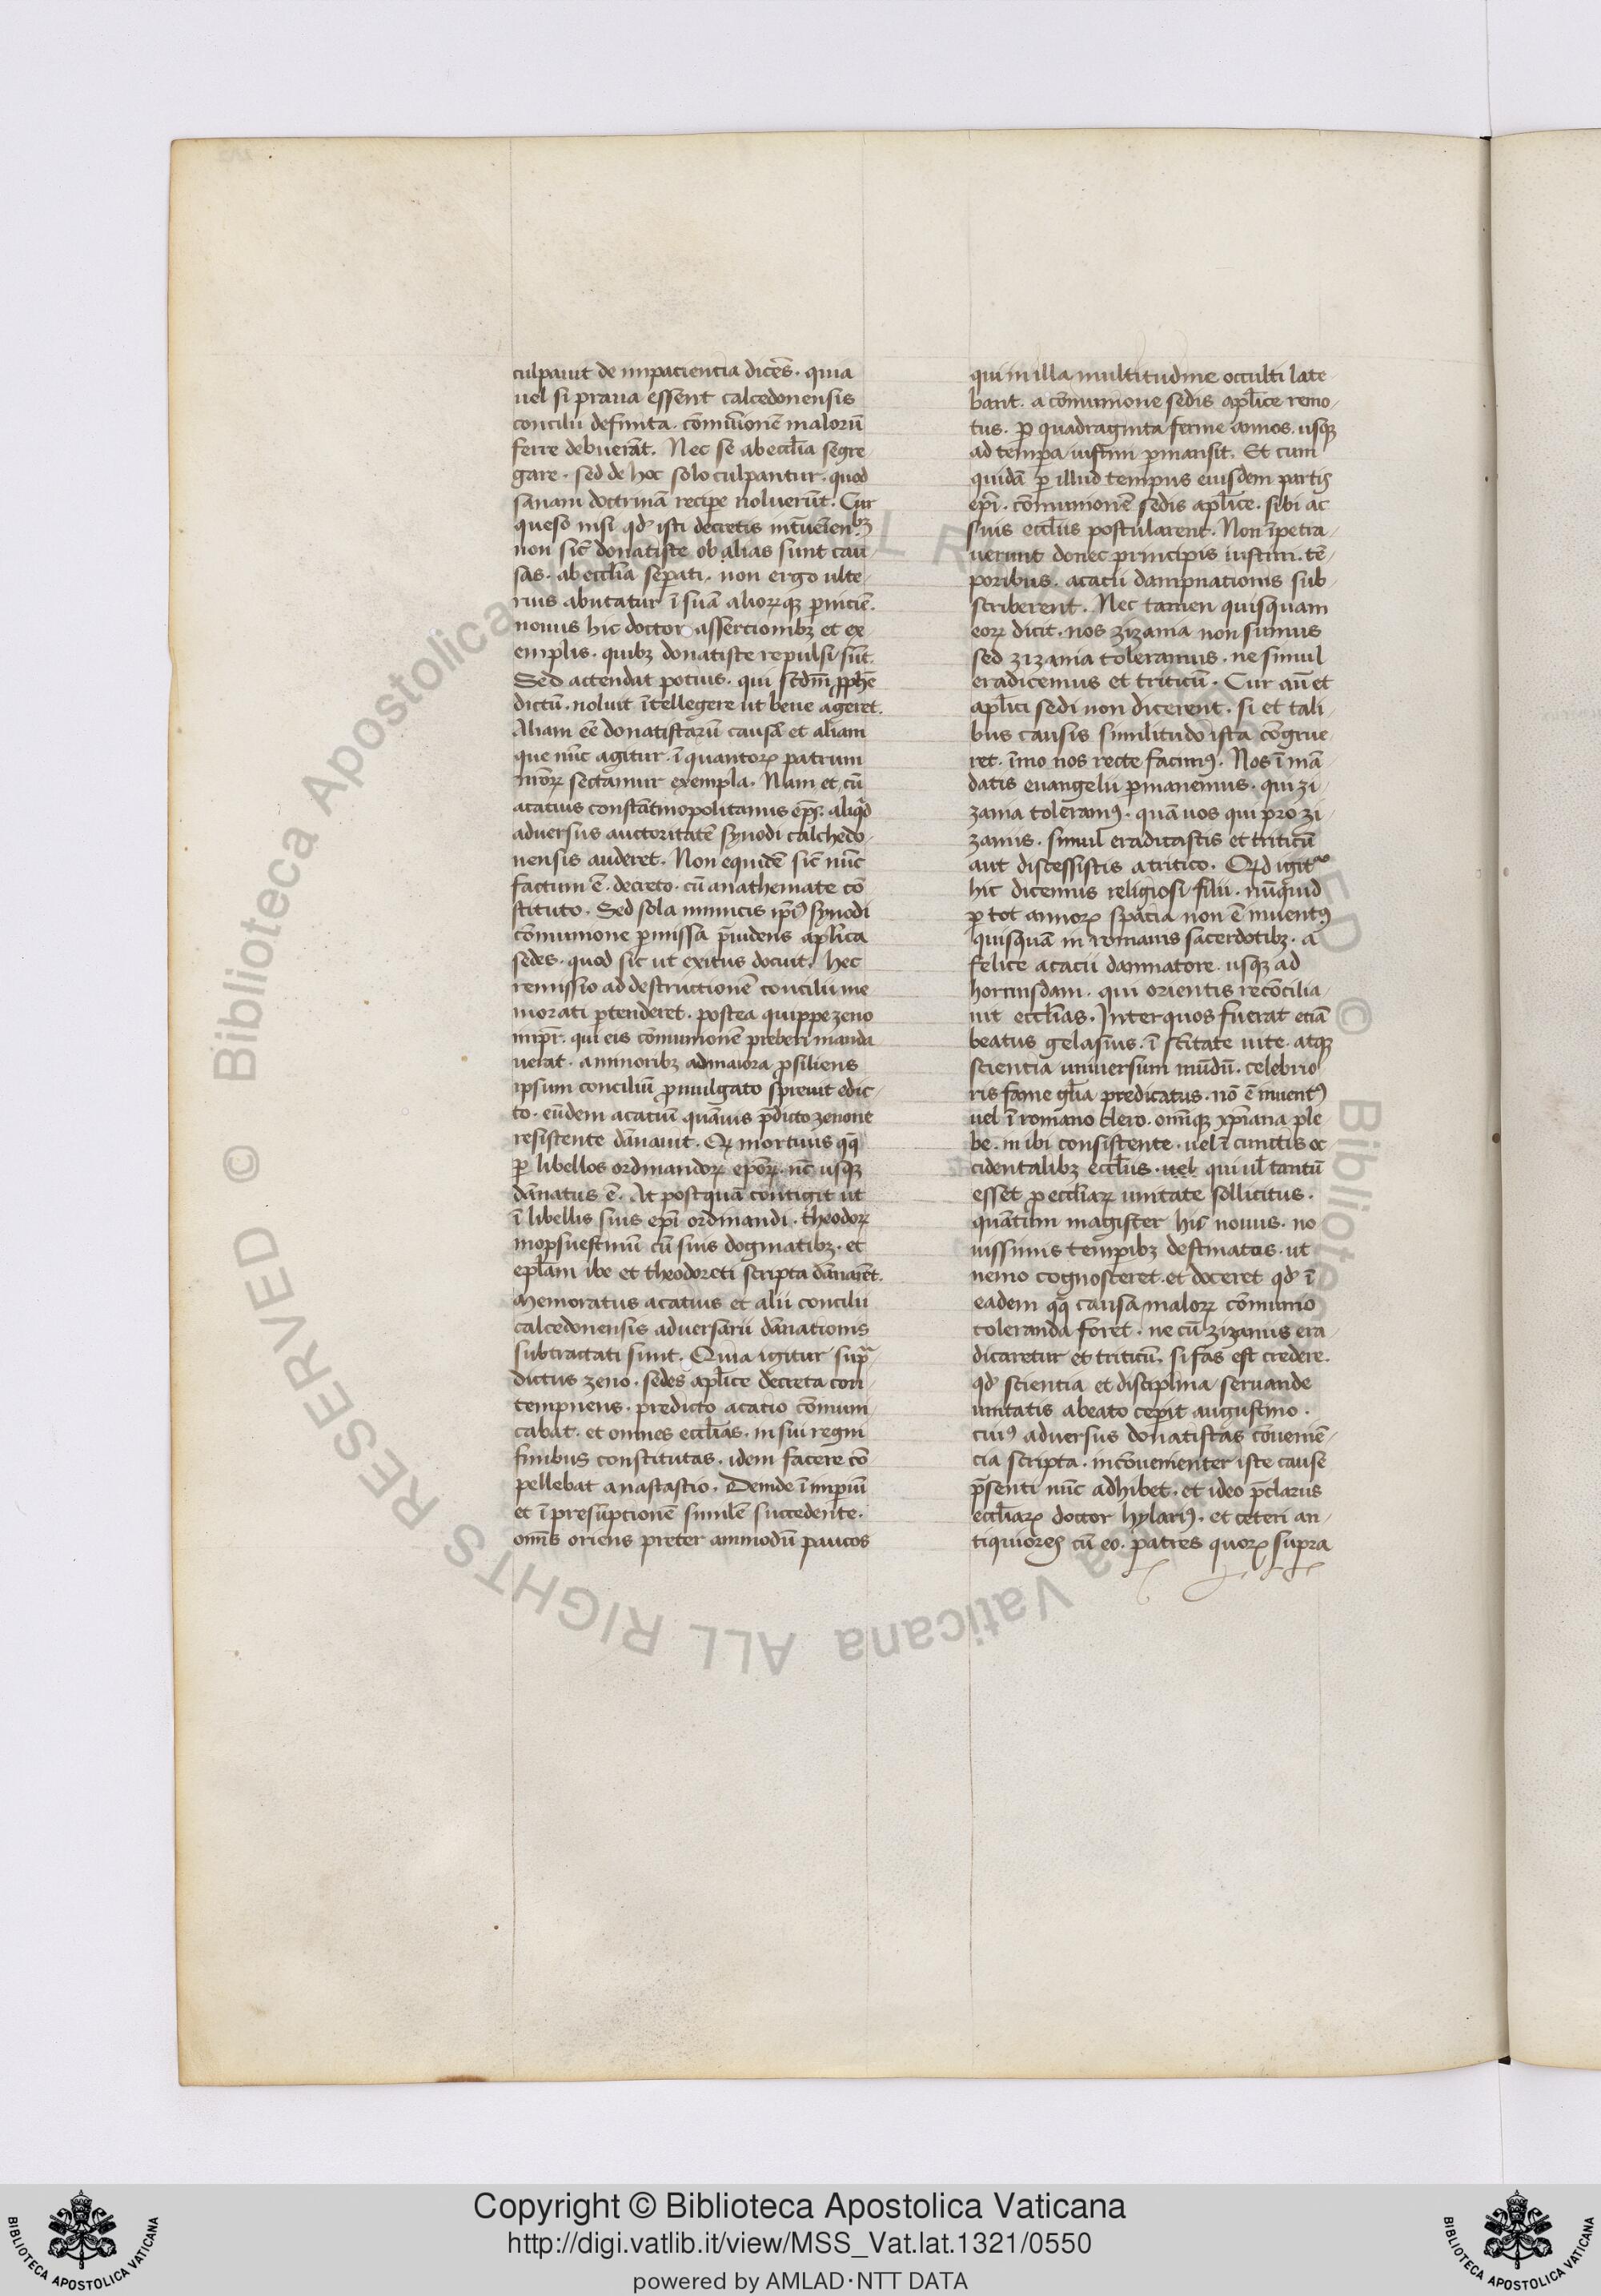 culpauit de impaciencia dicēs · quia
uel si praua essent calcedonensis
concilii definita · cōmūionē malorū
ferre debuerāt. Nec se ab eccl̄ia segre
gare · sed de hoc solo culpantur · quod
sanam doctrinā recipe noluerūt. Cur
queso nisi qd' isti decretis
non sic̄ donatiste ob alias sunt cau
sas · ab eccl̄ia sep̄ati · non ergo ulte
rius abutatur ī suā aliorꝝqꝫ p̄niciē.
nouus hic doctor assertionibꝫ et ex
emplis · quibꝫ donatiste repulsi sūt.
Sed attendat potius · qui scdm̄ ꝓphe
dictū · noluit ītellegere ut bene ageret.
Aliam eē donatistarū causā et aliam
que nūc agitur · ī quantorꝝ patrum
nr̄orꝝ sectamur exempla. Nam et cū
acatius constātinopolitanus ep̄s · aliqͥd
aduersus auctoritatē synodi calchedo
nensis auderet. Non equidē sic̄ nūc
factum ē · decreto · cū anathemate cō
stituto · Sed sola inimicis ip̄iꝰ synodi
cōmunione ꝑmissa p̄uidens apl̄ica
sedes · quod sic ut exitus docuit · hec
remissio ad destructionē concilii me
morati ꝑtenderet · postea quippe zeno
imꝑr · qui eis cōmunionē preberi manda
uerat · a minoribꝫ ad maiora ꝓsiliens
ipsum conciliū ꝓmulgato spreuit edic
to · eūdem acatiū quāuis p̄dicto zenone
resistente dānauit · Qꝫ mortuus qꝗ
ꝑ libellos ordinandorꝝ ep̄orꝝ · nc̄ usqꝫ
dānatus ē · At postquā contigit ut
ī libellis suis ep̄i ordinandi · theodorꝝ
mopsuestenū cū suis dogmatibꝫ · et
epl̄am ibe et theodoreti scripta dānarēt.
Memoratus acatius et alii concilii
calcedonensis aduersarii dānationis
subtractati sunt · Quia igitur supͣ
dictus zeno · sedes apl̄ice decreta con
tempnens · predicto acatio cōmuni
cabat · et omnes eccl̄ias · in sui regni
finibus constitutas · idem facere cō
pellebat anastastio · Deinde ī impiū
et ī presūptionē similē succedente ·
oms̄ oriens preter ammodū paucos
qui in illa multitudine occulti late
bant · a cōmunione sedis apl̄ice remo
tus · ꝑ quadraginta ferme annos · usqꝫ
ad tempa iustini ꝑmansit · Et cum
quidā ꝑ illud tempus eiusdem partis
ep̄i · cōmunionē sedis apl̄ice · sibi ac
suis eccl̄iis postularent · Non īpetra
uerunt donec principis iustini · tē
poribus · acacii dampnationis sub
scriberent · Nec tamen quisquam
eorꝝ dicit · nos zizania non sumus
sed zizania toleramus · ne simul
eradicemus et triticū · Cur aū et
apl̄ici sedi non dicerent · si et tali
bus causis similitudo ista congrue
ret · īmo nos recte facimꝰ · Nos ī mā
datis euangelii ꝑmanemus · qui zi
zania toleramꝰ · quā uos qui pro zi
zaniis · simul eradicastis et triticū
aut discessistis a tritico · Qͥd igitͬ
hic dicemus religiosi filii · nūquid
ꝑ tot annorꝝ spacia non ē inuentꝰ
quisquā in romanis sacerdotibꝫ · a
felice acacii damnatore · usqꝫ ad
hormisdam · qui orientis recōcilia
uit eccl̄ias · Inter quos fuerat etiā
beatus gelasius · ī sc̄itate uite · atqꝫ
scientia uniuersum mūdū · celebrio
ris fame gl̄ia predicatus · nō ē inuentꝰ
uel ī romano clero · omīqꝫ xp̄iana ple
be · in ibi consistente · uel ī cunctis oc
cidentalibꝫ eccl̄iis · uel qui ul̄ tantū
esset ꝓ eccl̄iarꝝ unitate sollicitus ·
quātum magister hic nouus · no
uissimis tempibꝫ destinatus · ut
nemo cognosceret · et doceret qd' ī
eadem qꝗ causa malorꝝ cōmunio
toleranda foret · ne cū zizaniis era
dicaretur et triticū · si fas est credere ·
qd' scientia et disciplina seruande
unitatis a beato cepit augustino ·
cuiꝰ aduersus donatistas cōueniē
cia scripta · incōuenienter iste cause
p̄senti nūc adhibet · et ideo p̄clarus
eccl̄iarꝝ doctor hylariꝰ · et ceteri an
tiquiores cū eo · patres quorꝝ supra
© Biblioteca Apostolica Vaticana ALL RIGHTS RESERVED
Copyright © Biblioteca Apostolica Vaticana
http://digi.vatlib.it/view/MSS_Vat.lat.1321/0550
powered by AMLAD·NTT DATA
BIBLIOTECA APOSTOLICA VATICANA
BIBLIOTECA APOSTOLICA VATICANA